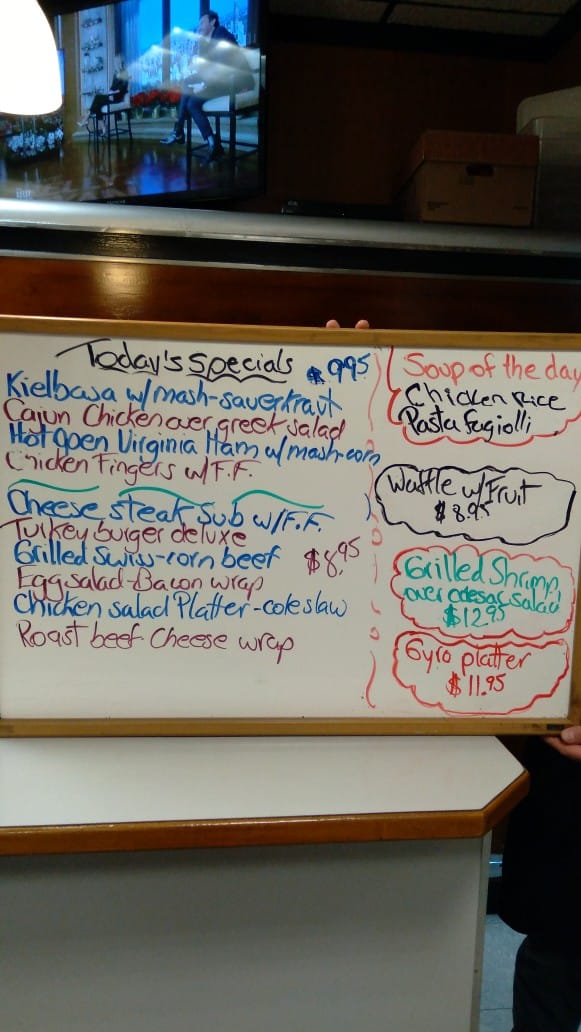 Today's Specials $9.95
Kielbasa w/mash-sauerkraut
Cajun Chicken over greek salad
Hot open Virginia Ham w/mash-corn
Chicken Fingers w/F.F.
Cheese steak Sub w/F.F.
Turkey burger deluxe
Grilled Swiss-corn beef $8.95
Egg salad-Bacon wrap
Chicken salad Platter-coleslaw
Roast beef Cheese wrap
Soup of the day
Chicken Rice
Pasta fagiolli
Waffle w/Fruit
$8.95
Grilled Shrimp
over cesar salad
$12.95
Gyro platter
$11.95